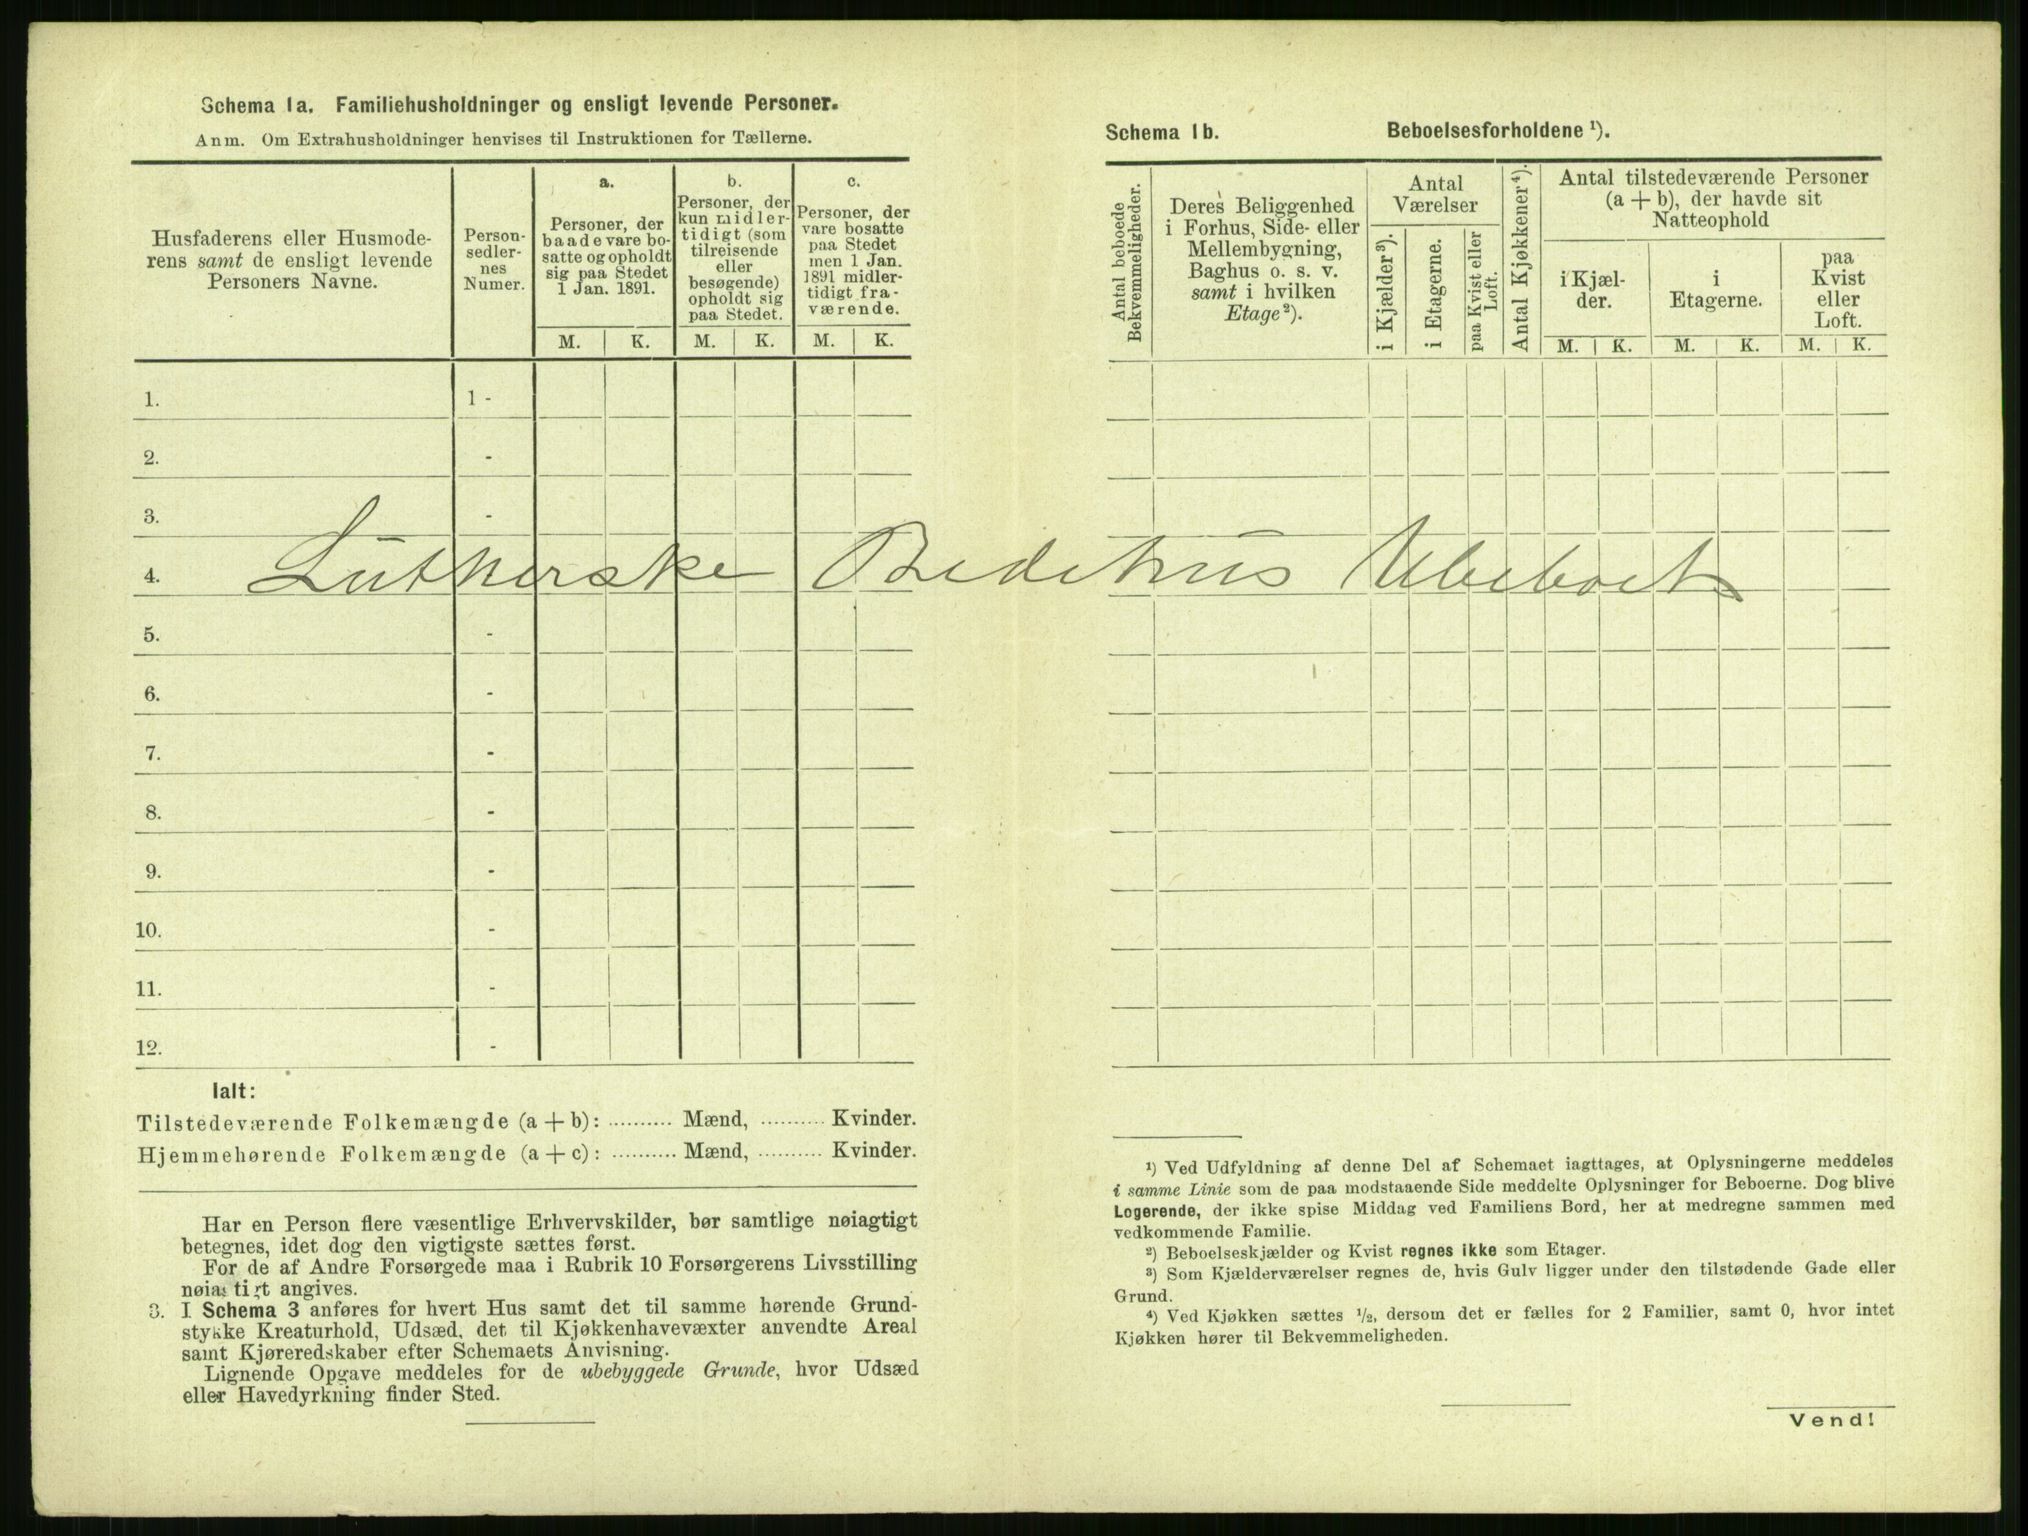 Schema 1a. Familiehusholdninger og ensligt levende Personer.
Anm. Om Extrahusholdninger henvises til Instruktionen for Tællerne.
Husfaderens eller Husmode-
rens samt de ensligt levende
Personers Navne.
Person-
sedler-
nes
Numer.
a.
Personer, der
baade vare bo-
satte og opholdt
sig paa Stedet
1 Jan. 1891.
b.
Personer, der
kun midler-
tidigt (som
tilreisende
eller
besøgende)
opholdt sig
paa Stedet.
c.
Personer, der
vare bosatte
paa Stedet
men 1 Jan.
1891 midler-
tidigt fra-
værende.
M. K. M. K. M. K.
1. 1 -
2. -
3. -
4. Lutherske Bedehus Ubeboet
5. -
6. -
7. -
8. -
9. -
10. -
11. -
12. -
Ialt:
Tilstedeværende Folkemængde (a + b): .......... Mænd, .......... Kvinder.
Hjemmehørende Folkemængde (a + c): .......... Mænd, .......... Kvinder.
Har en Person flere væsentlige Erhvervskilder, bør samtlige nøiagtigt
betegnes, idet dog den vigtigste sættes først.
For de af Andre Forsørgede maa i Rubrik 10 Forsørgerens Livsstilling
nøiagtigt angives.
3. I Schema 3 anføres for hvert Hus samt det til samme hørende Grund-
stykke Kreaturhold, Udsæd, det til Kjøkkenhavevæxter anvendte Areal
samt Kjøreredskaber efter Schemaets Anvisning.
Lignende Opgave meddeles for de ubebyggede Grunde, hvor Udsæd
eller Havedyrkning finder Sted.
Schema 1b. Beboelsesforholdene ¹).
Antal beboede
Bekvemmeligheder.
Deres Beliggenhed
i Forhus, Side- eller
Mellembygning,
Baghus o. s. v.
samt i hvilken
Etage ²).
Antal
Værelser
i Kjælder ³).
i Etagerne.
paa Kvist eller
Loft.
Antal Kjøkkener ⁴).
Antal tilstedeværende Personer
(a + b), der havde sit
Natteophold
i Kjæl-
der.
i
Etagerne.
paa
Kvist
eller
Loft.
M. K. M. K. M. K.
¹) Ved Udfyldning af denne Del af Schemaet iagttages, at Oplysningerne meddeles
i samme Linie som de paa modstaaende Side meddelte Oplysninger for Beboerne. Dog blive
Logerende, der ikke spise Middag ved Familiens Bord, her at medregne sammen med
vedkommende Familie.
²) Beboelseskjælder og Kvist regnes ikke som Etager.
³) Som Kjælderværelser regnes de, hvis Gulv ligger under den tilstødende Gade eller
Grund.
⁴) Ved Kjøkken sættes ½, dersom det er fælles for 2 Familier, samt 0, hvor intet
Kjøkken hører til Bekvemmeligheden.
Vend!